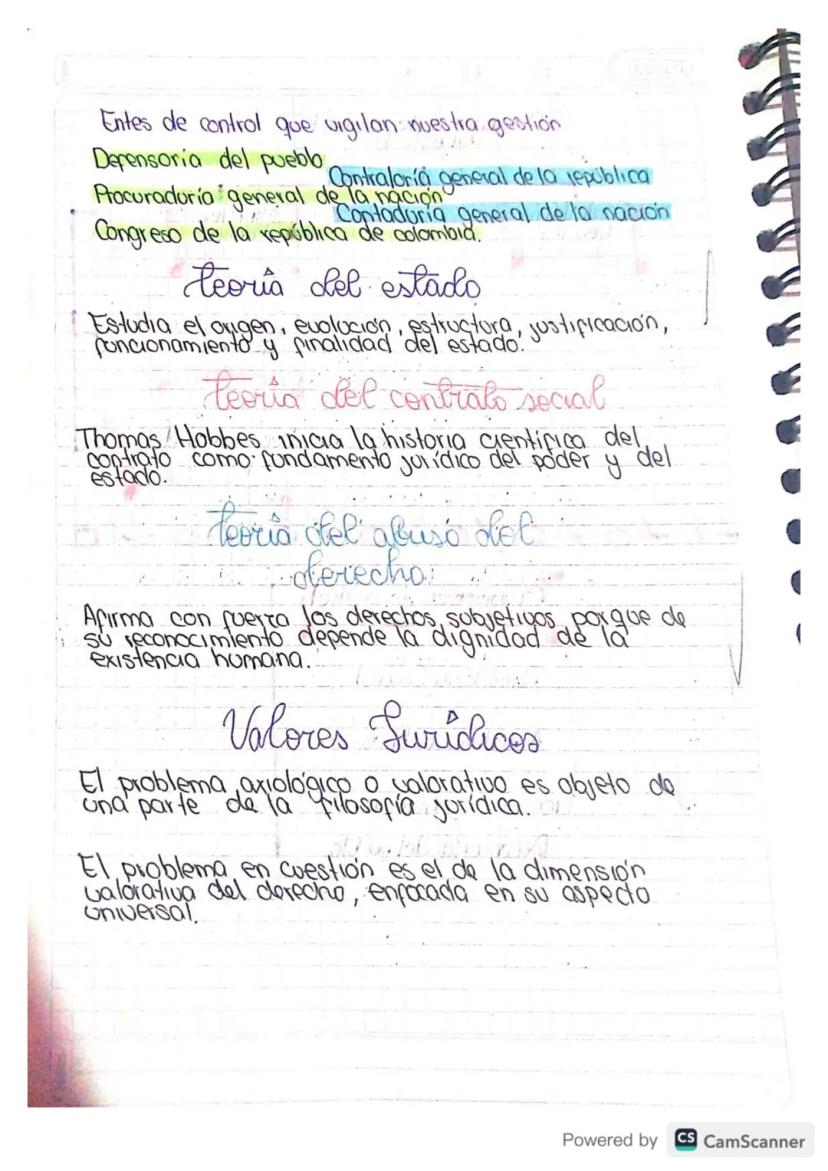 Entes de control que vigilan nuestra gestión
Defensoría del pueblo
Contraloría general de la república
Procuraduría general de la nación
Contaduría general de la nación
Congreso de la república de colombia.
teoría del estado
Estudia el origen, evolución, estructura, justificación,
funcionamiento y finalidad del estado.
teoría del contrato social
Thomas Hobbes inicia la historia científica del
contrato como fundamento jurídico del poder y del
estado.
teoría del abuso del
derecho
Afirma con fuerza los derechos subjetivos porque de
su reconocimiento depende la dignidad de la
existencia humana.
Valores Jurídicos
El problema axiológico o valorativo es objeto de
una parte de la filosofía jurídica.
El problema en cuestión es el de la dimensión
valorativa del derecho, enfocada en su aspecto
universal.
Powered by CS CamScanner